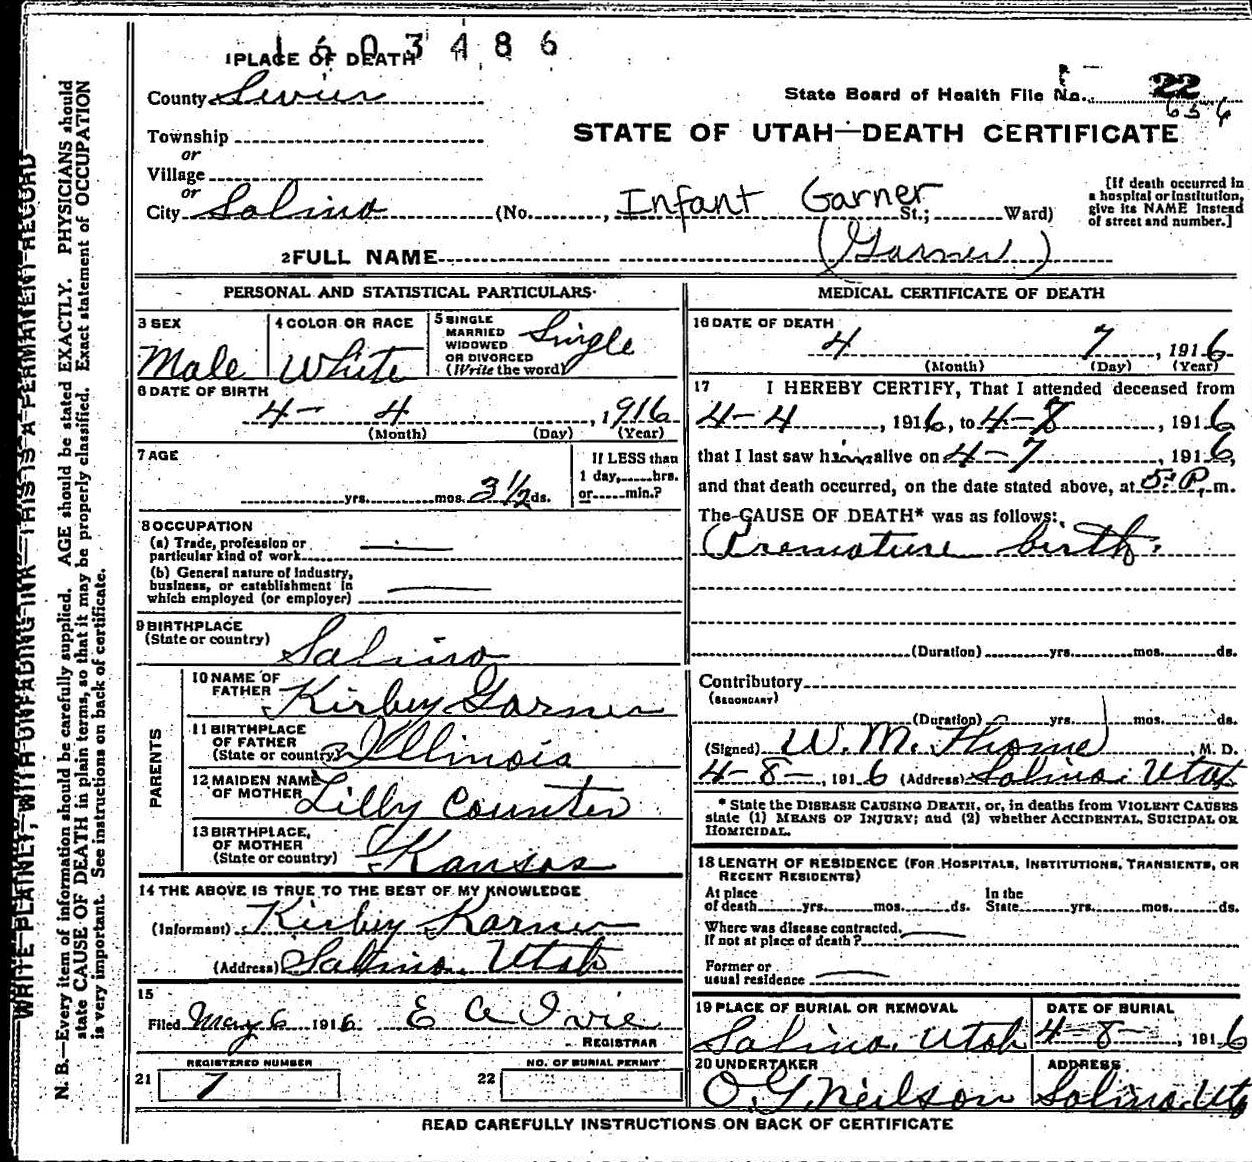 1603486
1 PLACE OF DEATH
County Sevier
State Board of Health File No. 22
656
Township
or
Village
or
STATE OF UTAH—DEATH CERTIFICATE
City Salina (No. , Infant Garner St.; Ward)
[If death occurred in
a hospital or institution,
give its NAME instead
of street and number.]
2 FULL NAME (Garner)
PERSONAL AND STATISTICAL PARTICULARS
3 SEX
Male
4 COLOR OR RACE
White
5 SINGLE
MARRIED
WIDOWED
OR DIVORCED
(Write the word)
Single
6 DATE OF BIRTH
4- 4 , 1916
(Month) (Day) (Year)
7 AGE
yrs. mos. 3 1/2 ds.
If LESS than
1 day, hrs.
or min.?
8 OCCUPATION
(a) Trade, profession or
particular kind of work
(b) General nature of industry,
business, or establishment in
which employed (or employer)
9 BIRTHPLACE
(State or country) Salina
PARENTS
10 NAME OF
FATHER Kirby Garner
11 BIRTHPLACE
OF FATHER
(State or country) Illinois
12 MAIDEN NAME
OF MOTHER Lilly Counter
13 BIRTHPLACE,
OF MOTHER
(State or country) Kansas
14 THE ABOVE IS TRUE TO THE BEST OF MY KNOWLEDGE
(Informant) Kirby Karner
(Address) Salina. Utah
15
Filed May 6 1916 E A Ivie
REGISTRAR
REGISTERED NUMBER
21 7
NO. OF BURIAL PERMIT
22
MEDICAL CERTIFICATE OF DEATH
16 DATE OF DEATH
4 7 , 1916
(Month) (Day) (Year)
17 I HEREBY CERTIFY, That I attended deceased from
4-4 , 1916, to 4-8 , 1916
that I last saw him alive on 4-7 , 1916,
and that death occurred, on the date stated above, at 5 P. m.
The CAUSE OF DEATH* was as follows:
Premature birth.
(Duration) yrs. mos. ds.
Contributory
(SECONDARY)
(Duration) yrs. mos. ds.
(Signed) W. M. Thome , M. D.
4-8- , 1916 (Address) Salina. Utah
* State the DISEASE CAUSING DEATH, or, in deaths from VIOLENT CAUSES
state (1) MEANS OF INJURY; and (2) whether ACCIDENTAL, SUICIDAL OR
HOMICIDAL.
18 LENGTH OF RESIDENCE (FOR HOSPITALS, INSTITUTIONS, TRANSIENTS, OR
RECENT RESIDENTS)
At place
of death yrs. mos. ds.
In the
State yrs. mos. ds.
Where was disease contracted,
If not at place of death?
Former or
usual residence
19 PLACE OF BURIAL OR REMOVAL
Salina. Utah
DATE OF BURIAL
4-8- , 1916
20 UNDERTAKER
O. G. Neilson
ADDRESS
Salina. Uta
READ CAREFULLY INSTRUCTIONS ON BACK OF CERTIFICATE
WRITE PLAINLY, WITH UNFADING INK—THIS IS A PERMANENT RECORD
N. B.—Every item of information should be carefully supplied. AGE should be stated EXACTLY. PHYSICIANS should
state CAUSE OF DEATH in plain terms, so that it may be properly classified. Exact statement of OCCUPATION
is very important. See instructions on back of certificate.